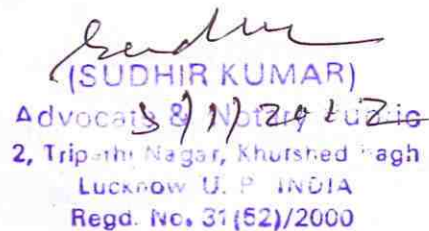 Sudhir
(SUDHIR KUMAR)
Advocate & Notary Public
3/1/2012
2, Tripathi Nagar, Khurshed Bagh
Lucknow U. P. INDIA
Regd. No. 31(52)/2000